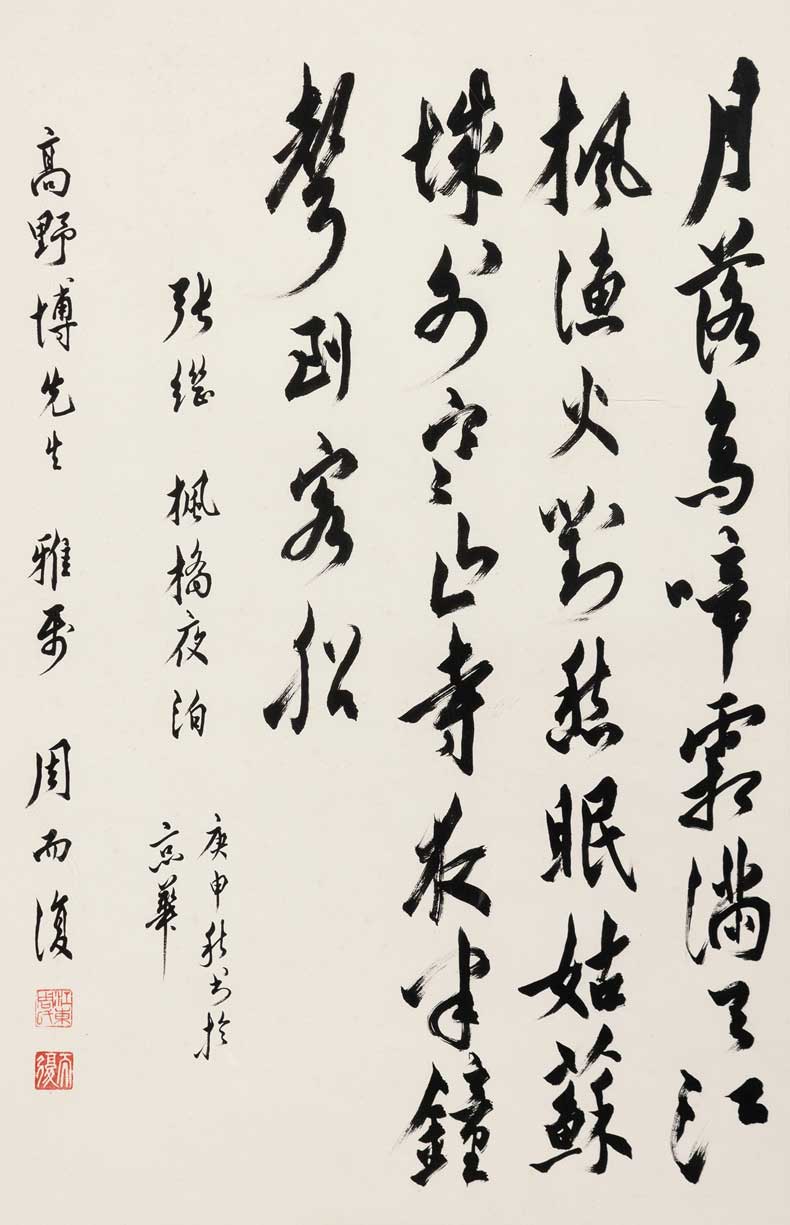 月落烏啼霜滿天江
楓漁火對愁眠姑蘇
城外寒山寺夜半鐘
聲到客船
張繼 楓橋夜泊
庚申秋書於
京華
高野博先生 雅属 周而復
江東周氏
而復